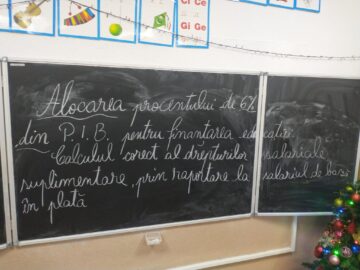 Ci Ce
Gi Ge
Alocarea procentului de 6%
din P.I.B. pentru finanțarea educației
Calculul corect al drepturilor salariale
suplimentare, prin raportare la salariul de bază
în plată